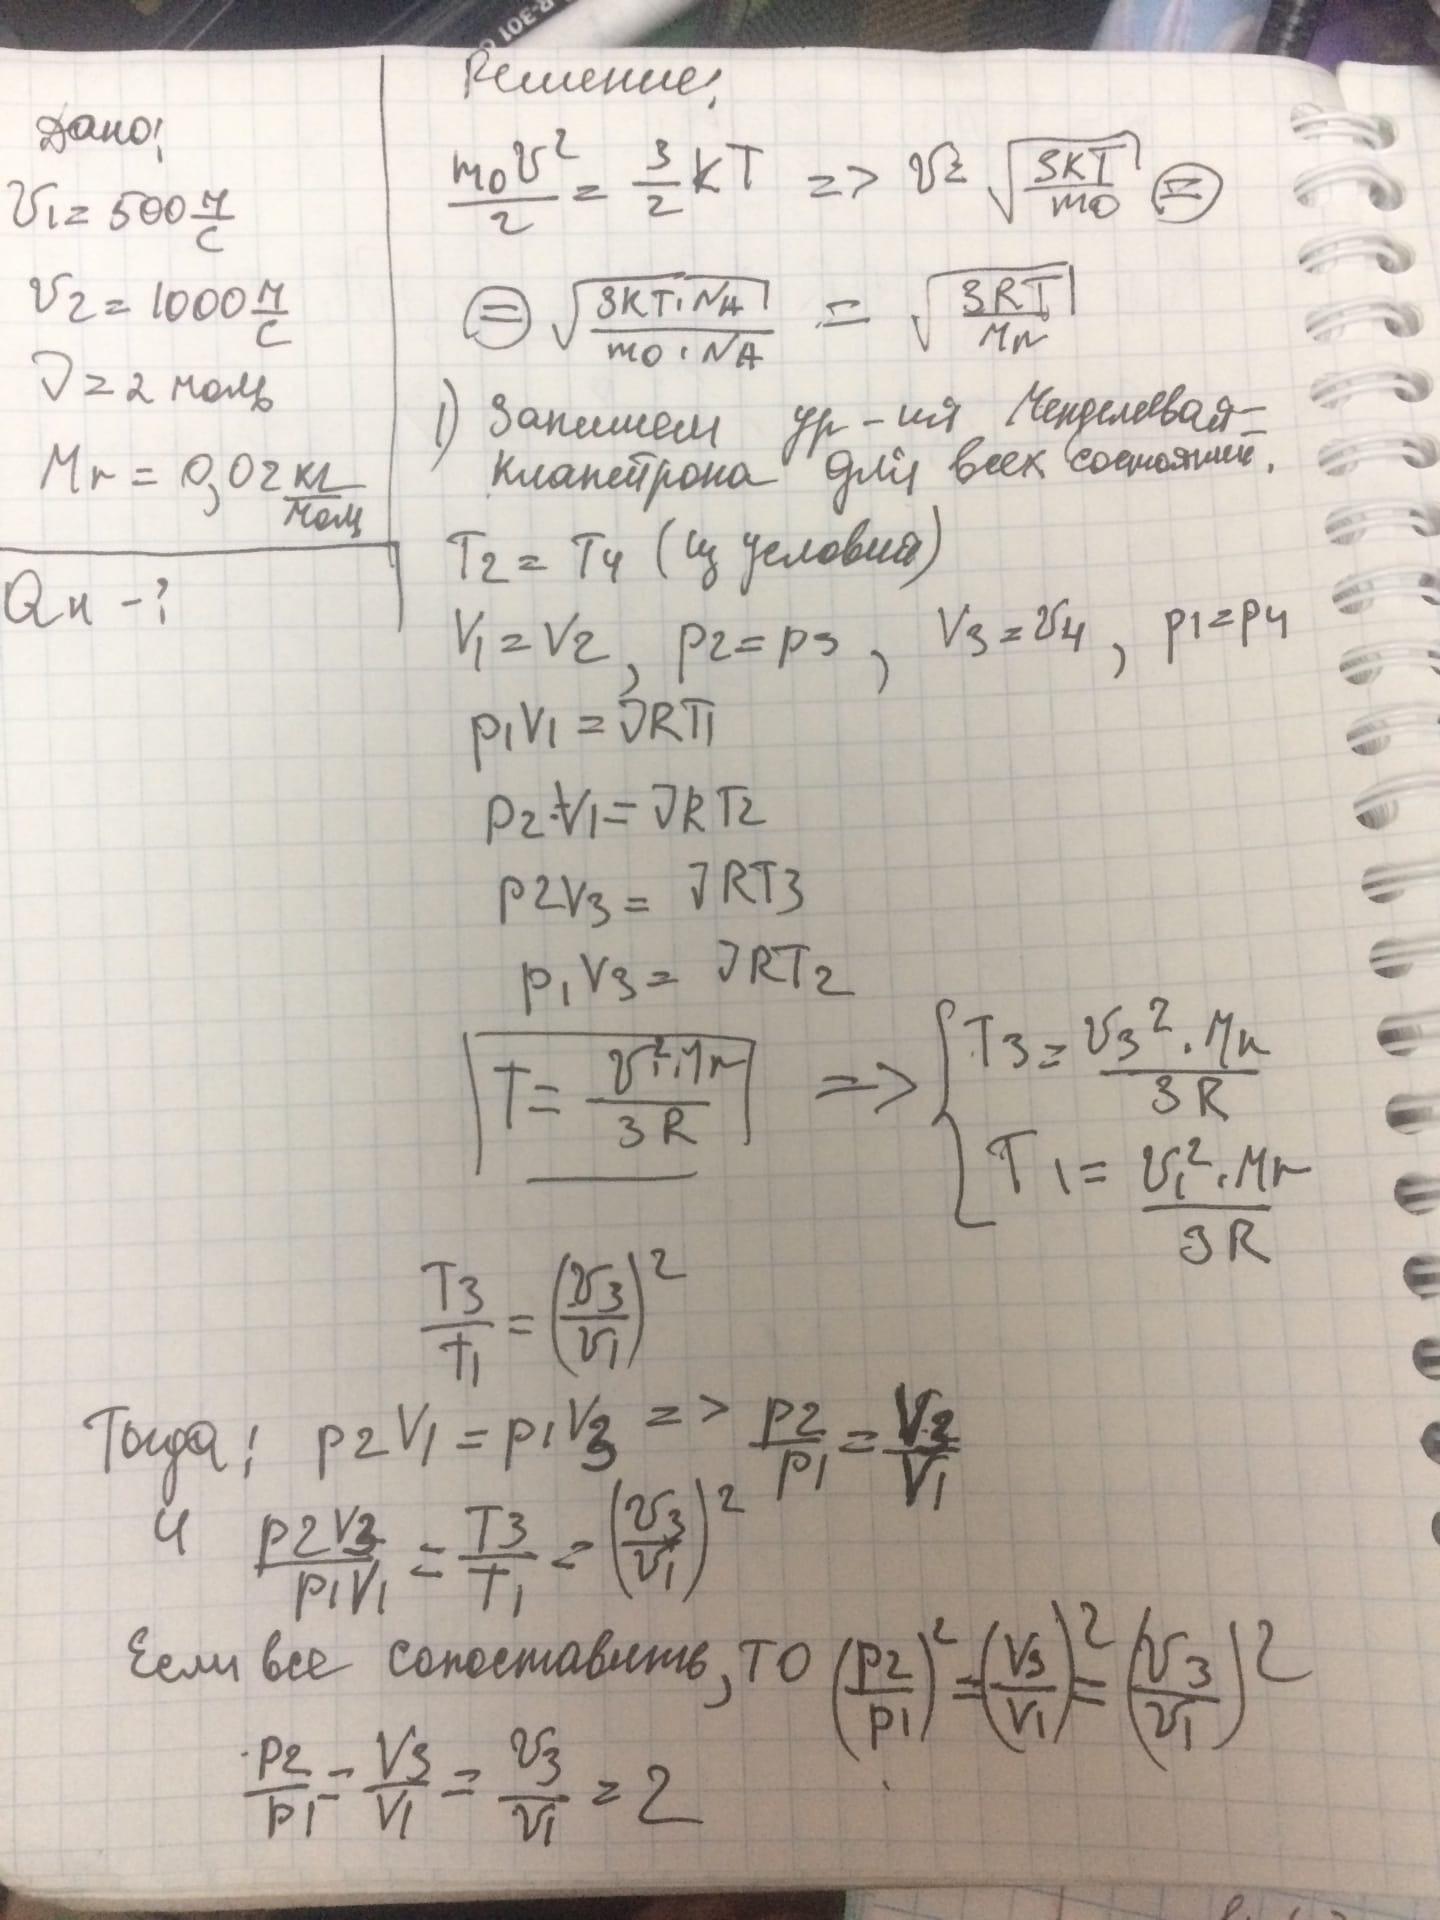 R-301
Дано:
υ1 = 500 м/с
υ2 = 1000 м/с
ν = 2 моль
Mr = 0,02 кг/моль
Qн - ?
Решение:
m0υ²/2 = 3/2 kT => υ = √(3kT/m0) =
= √(3kT·NA/m0·NA) = √(3RT/Mr)
1) Запишем ур-ия Менделеева-
Клапейрона для всех состояний.
T2 = T4 (из условия)
V1 = V2, p2 = p3, V3 = V4, p1 = p4
p1V1 = νRT1
p2·V1 = νRT2
p2V3 = νRT3
p1V3 = νRT2
T = υ²·Mr/3R => { T3 = υ3²·Mr/3R
T1 = υ1²·Mr/3R
T3/T1 = (υ3/υ1)²
Тогда: p2V1 = p1V3 => p2/p1 = V3/V1
И p2V3/p1V1 = T3/T1 = (υ3/υ1)²
Если все сопоставить, то (p2/p1)² = (V3/V1)² = (υ3/υ1)²
p2/p1 = V3/V1 = υ3/υ1 = 2